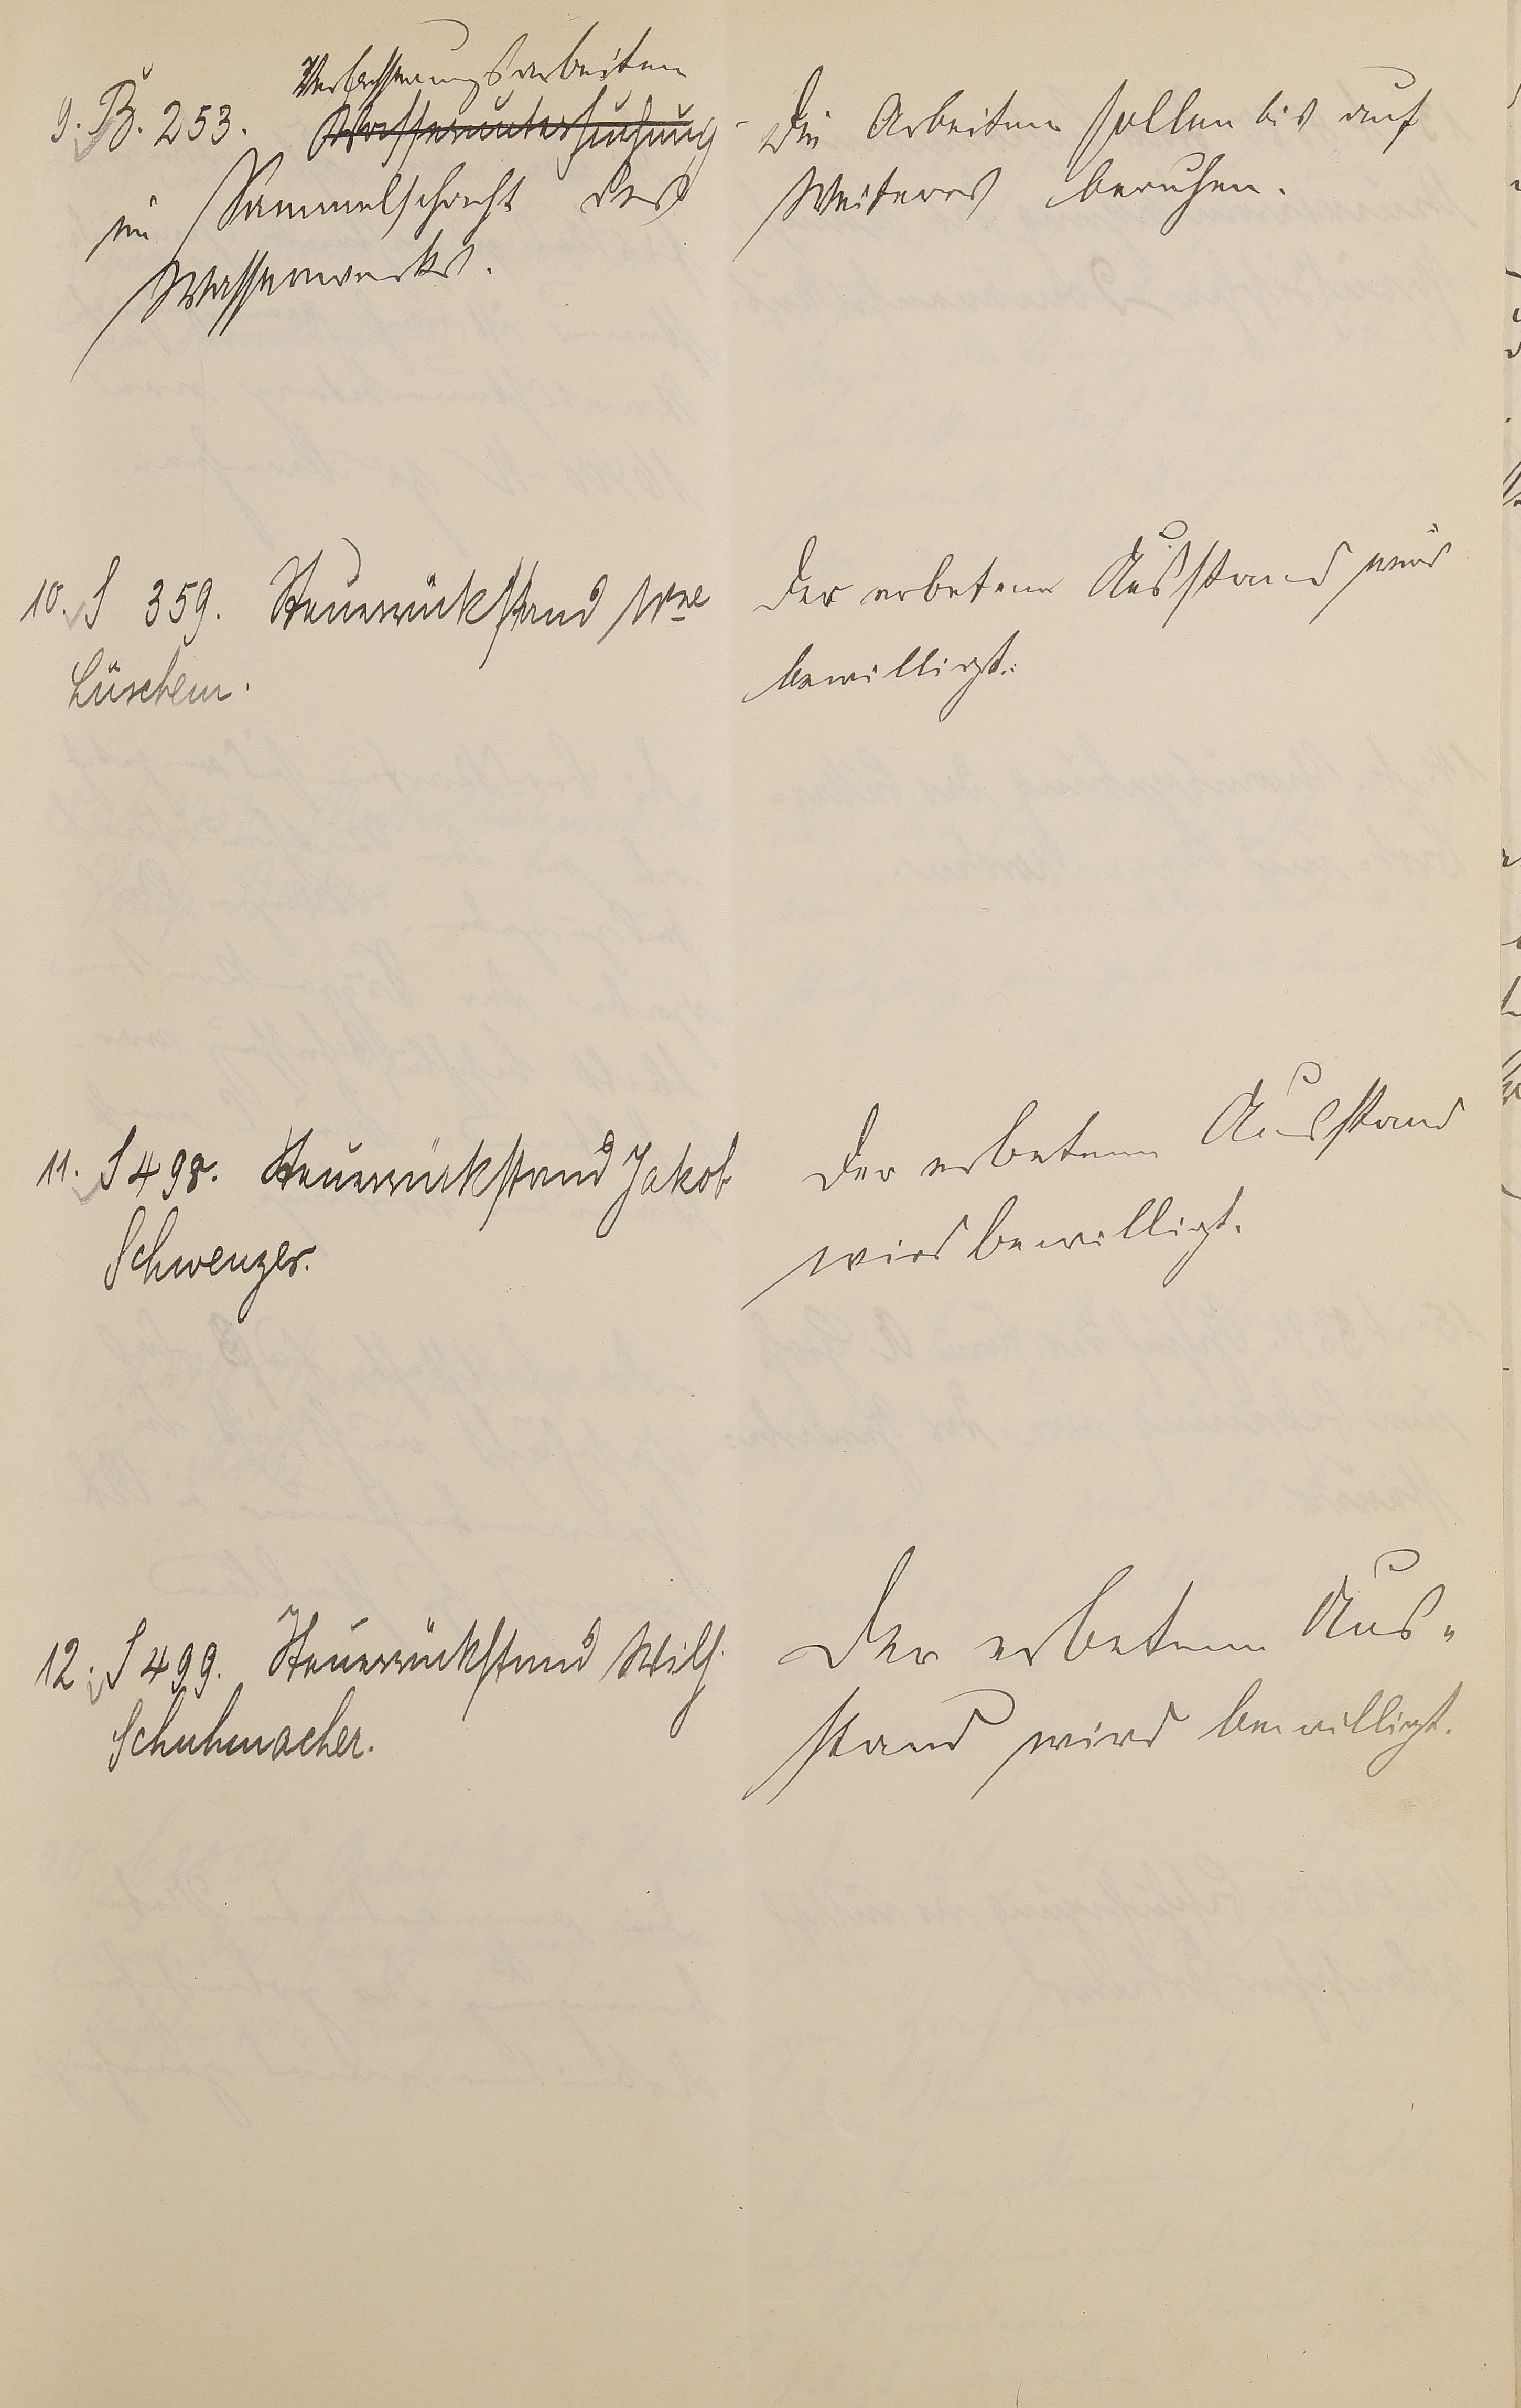 Verbesserungsarbeiten
9. B. 253. Wasseruntersuchung
im Sammelschacht des
Wasserwerks.
Die Arbeiten sollen bis auf
Weiteres beruhen.
10. S 359. Steuerrückstand Wwe
Lüschem.
Der erbetene Ausstand wird
bewilligt.
11. S 498. Steuerrückstand Jakob
Schwenger.
Der erbetene Ausstand
wird bewilligt.
12. S 499. Steuerrückstand Wilh.
Schuhmacher.
Der erbetene Aus-
stand wird bewilligt.